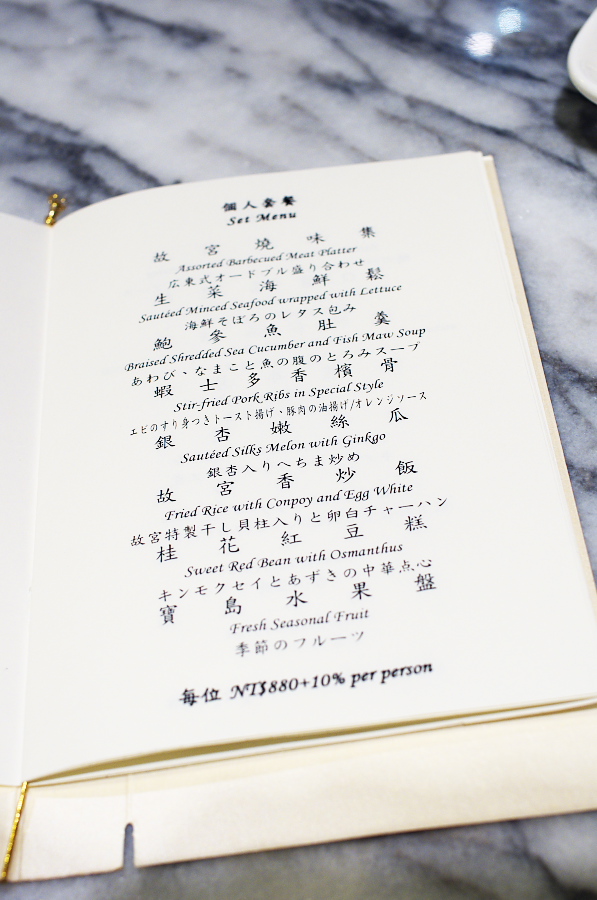 個人套餐
Set Menu
故宮燒味集
Assorted Barbecued Meat Platter
広東式オードブル盛り合わせ
生菜海鮮鬆
Sautéed Minced Seafood wrapped with Lettuce
海鮮そぼろのレタス包み
鮑參魚肚羹
Braised Shredded Sea Cucumber and Fish Maw Soup
あわび、なまこと魚の腹のとろみスープ
蝦士多香檳骨
Stir-fried Pork Ribs in Special Style
エビのすり身つきトースト揚げ、豚肉の油揚げ/オレンジソース
銀杏嫩絲瓜
Sautéed Silks Melon with Ginkgo
銀杏入りへちま炒め
故宮香炒飯
Fried Rice with Conpoy and Egg White
故宮特製干し貝柱入りと卵白チャーハン
桂花紅豆糕
Sweet Red Bean with Osmanthus
キンモクセイとあずきの中華点心
寶島水果盤
Fresh Seasonal Fruit
季節のフルーツ
每位 NT$880+10% per person